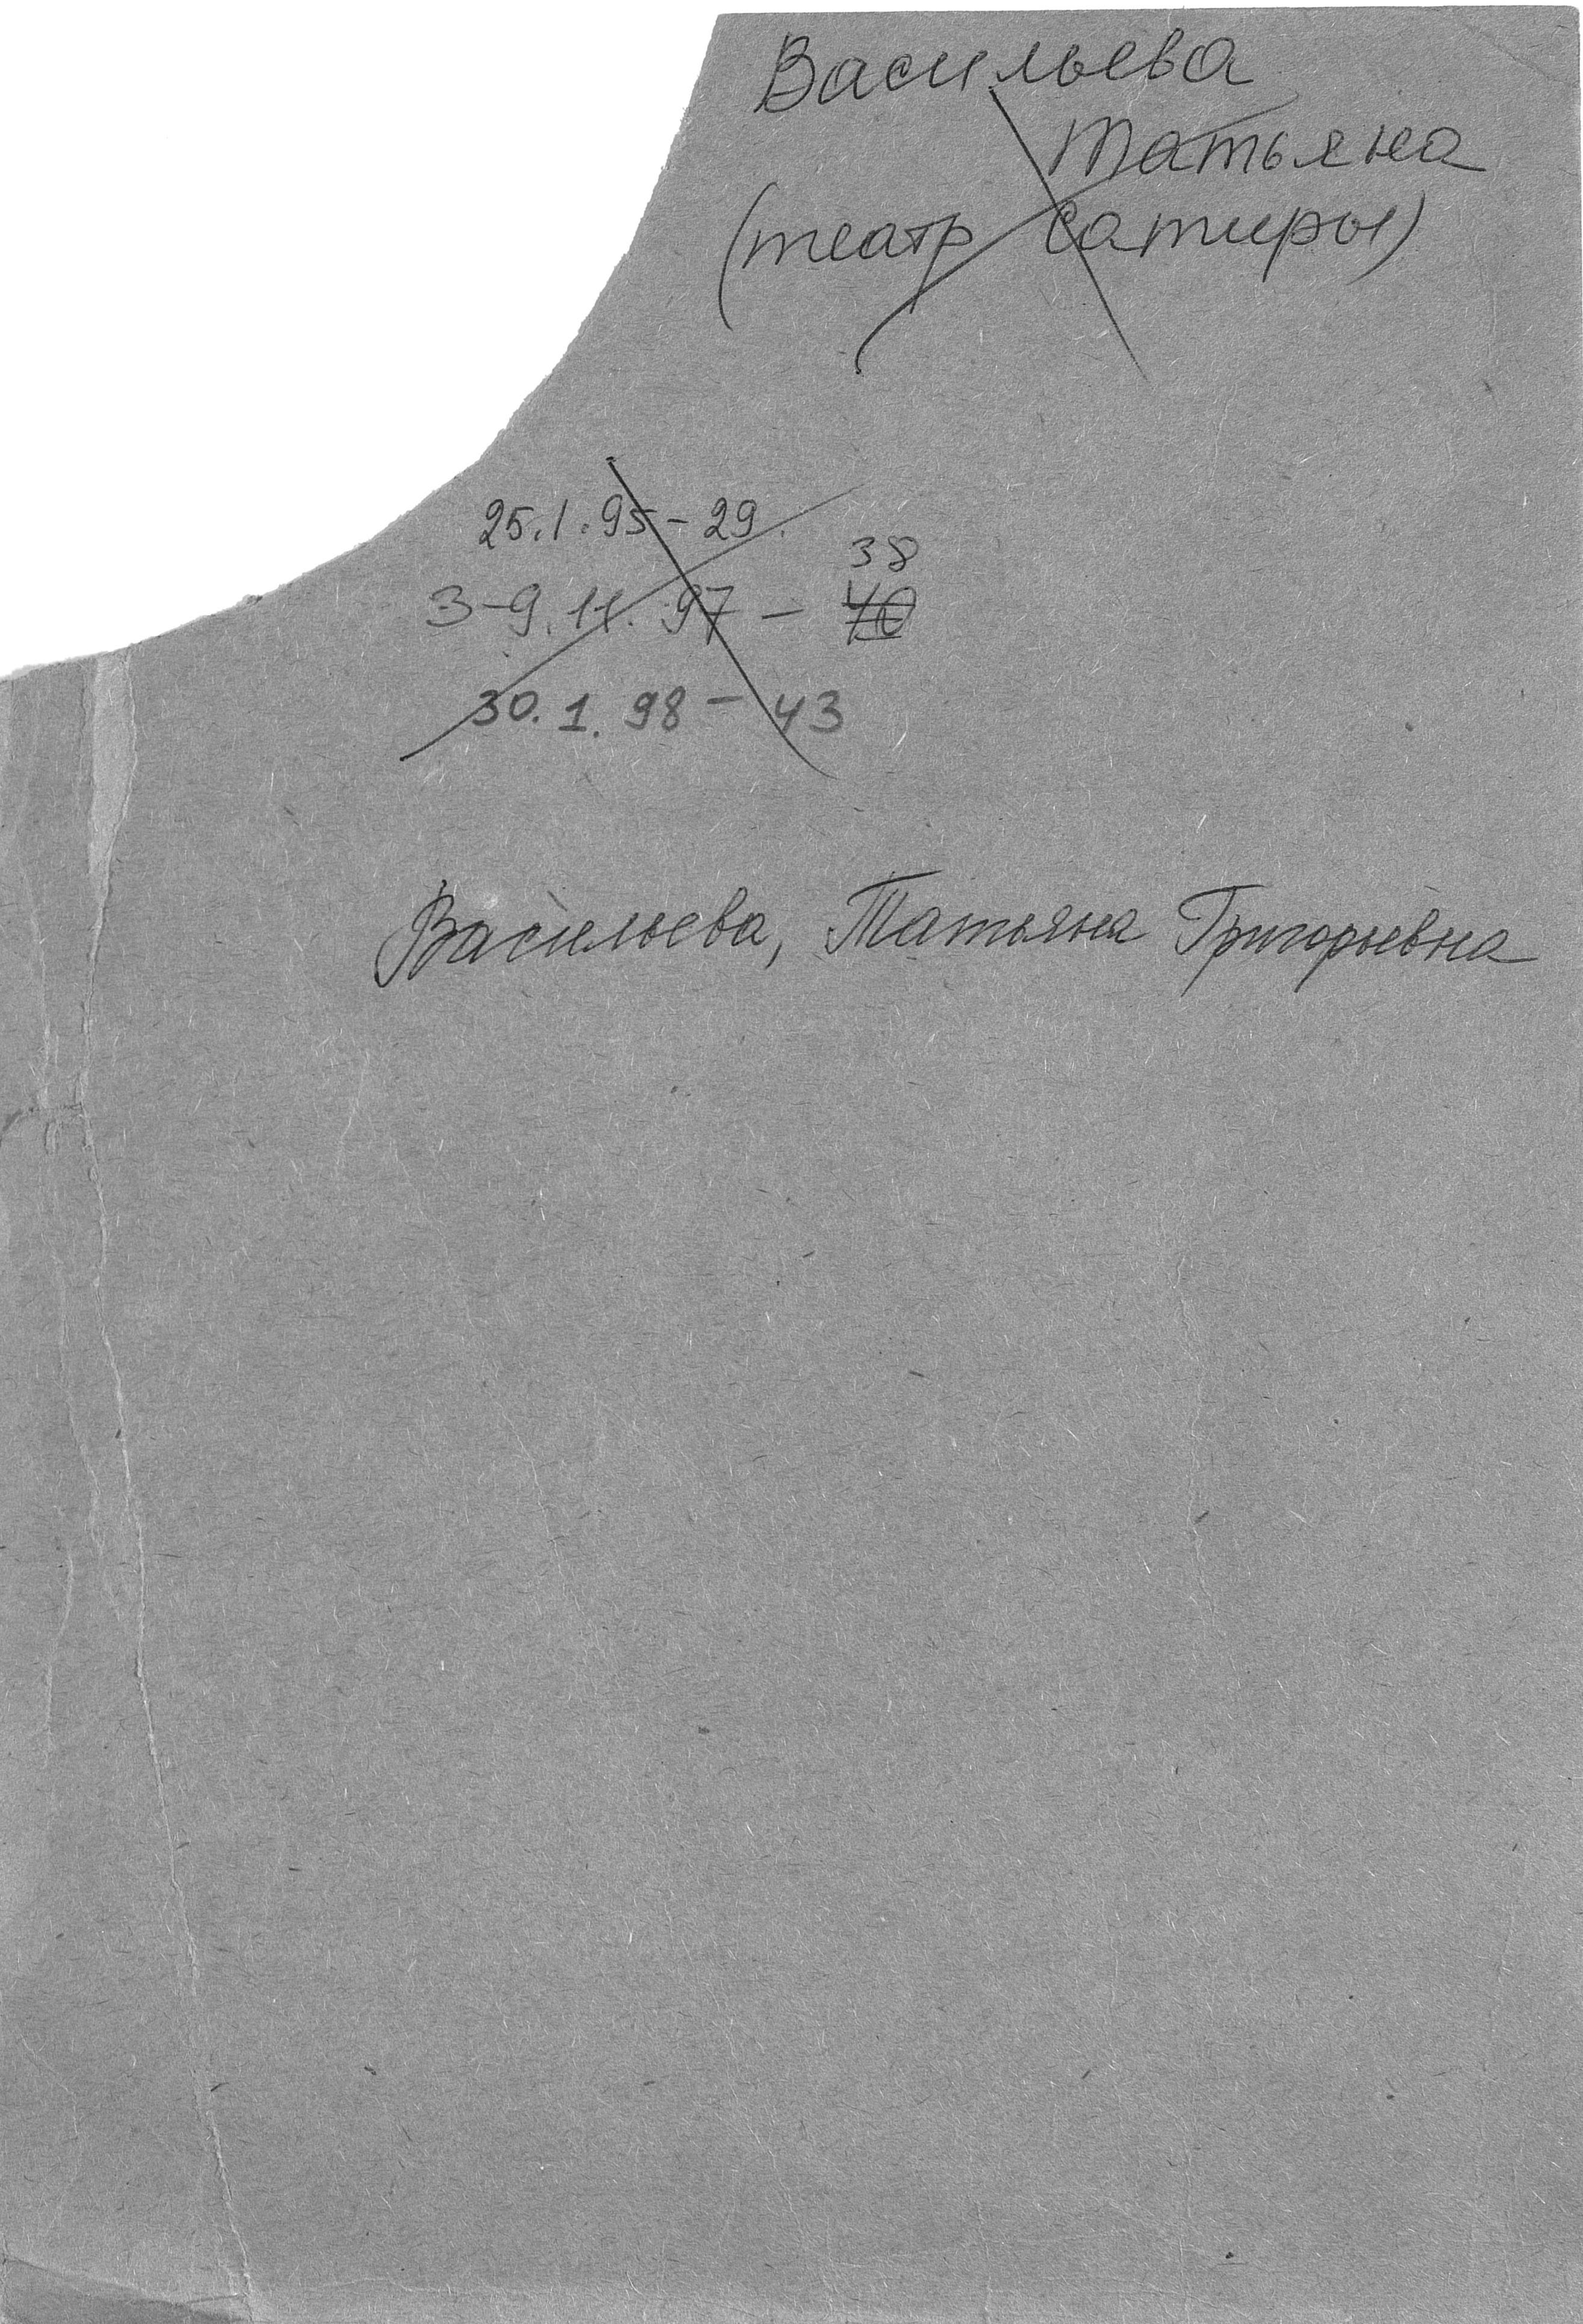 Васильева
Татьяна
(театр сатиры)
25.1.95 - 29.
38
3-9.11.97 - 40
30.1.98 - 43
Васильева, Татьяна Григорьевна